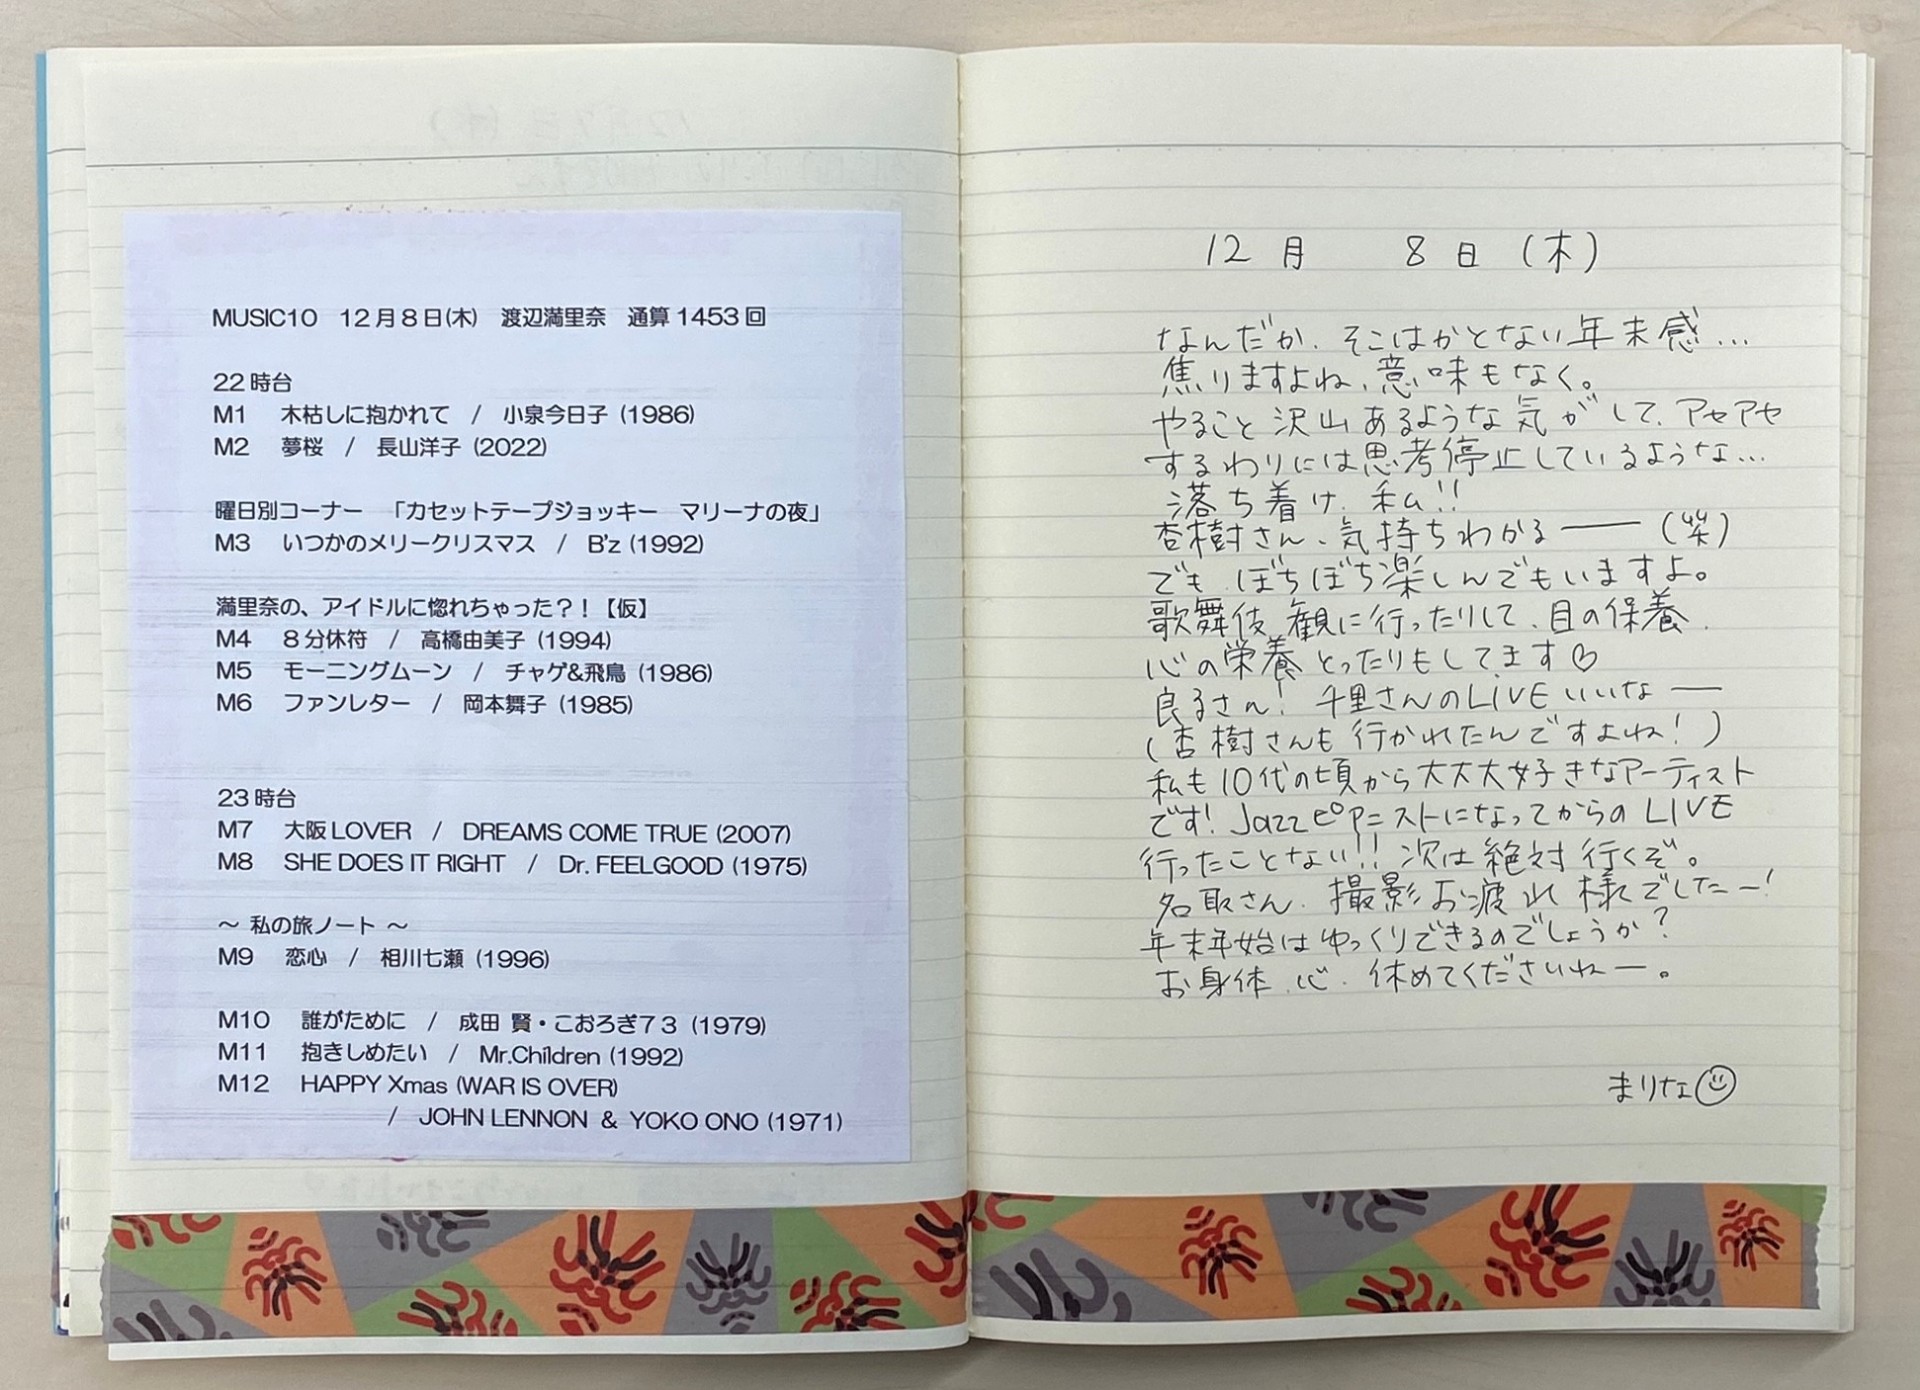 MUSIC10　12月8日(木)　渡辺満里奈　通算1453回
22時台
M1　木枯しに抱かれて　/　小泉今日子 (1986)
M2　夢桜　/　長山洋子 (2022)
曜日別コーナー　「カセットテープジョッキー　マリーナの夜」
M3　いつかのメリークリスマス　/　B'z (1992)
満里奈の、アイドルに惚れちゃった?!【仮】
M4　8分休符　/　高橋由美子 (1994)
M5　モーニングムーン　/　チャゲ&飛鳥 (1986)
M6　ファンレター　/　岡本舞子 (1985)
23時台
M7　大阪LOVER　/　DREAMS COME TRUE (2007)
M8　SHE DOES IT RIGHT　/　Dr. FEELGOOD (1975)
～ 私の旅ノート ～
M9　恋心　/　相川七瀬 (1996)
M10　誰がために　/　成田 賢・こおろぎ73 (1979)
M11　抱きしめたい　/　Mr.Children (1992)
M12　HAPPY Xmas (WAR IS OVER)
/　JOHN LENNON & YOKO ONO (1971)
12月　8日(木)
なんだか、そこはかとない年末感…
焦りますよね、意味もなく。
やること沢山あるような気がして、アセアセ
するわりには思考停止しているような…
落ち着け、私!!
杏樹さん、気持ちわかるー(笑)
でも、ぼちぼち楽しんでもいますよ。
歌舞伎、観に行ったりして、目の保養、
心の栄養とったりもしてます♡
良るさん!千里さんのLIVEいいなー
(杏樹さんも行かれたんですよね!)
私も10代の頃から大大大好きなアーティスト
です!JazzピアニストになってからのLIVE
行ったことない!!次は絶対行くぞ。
名取さん、撮影お疲れ様でしたー!
年末年始はゆっくりできるのでしょうか?
お身体、心、休めてくださいねー。
まりな☺